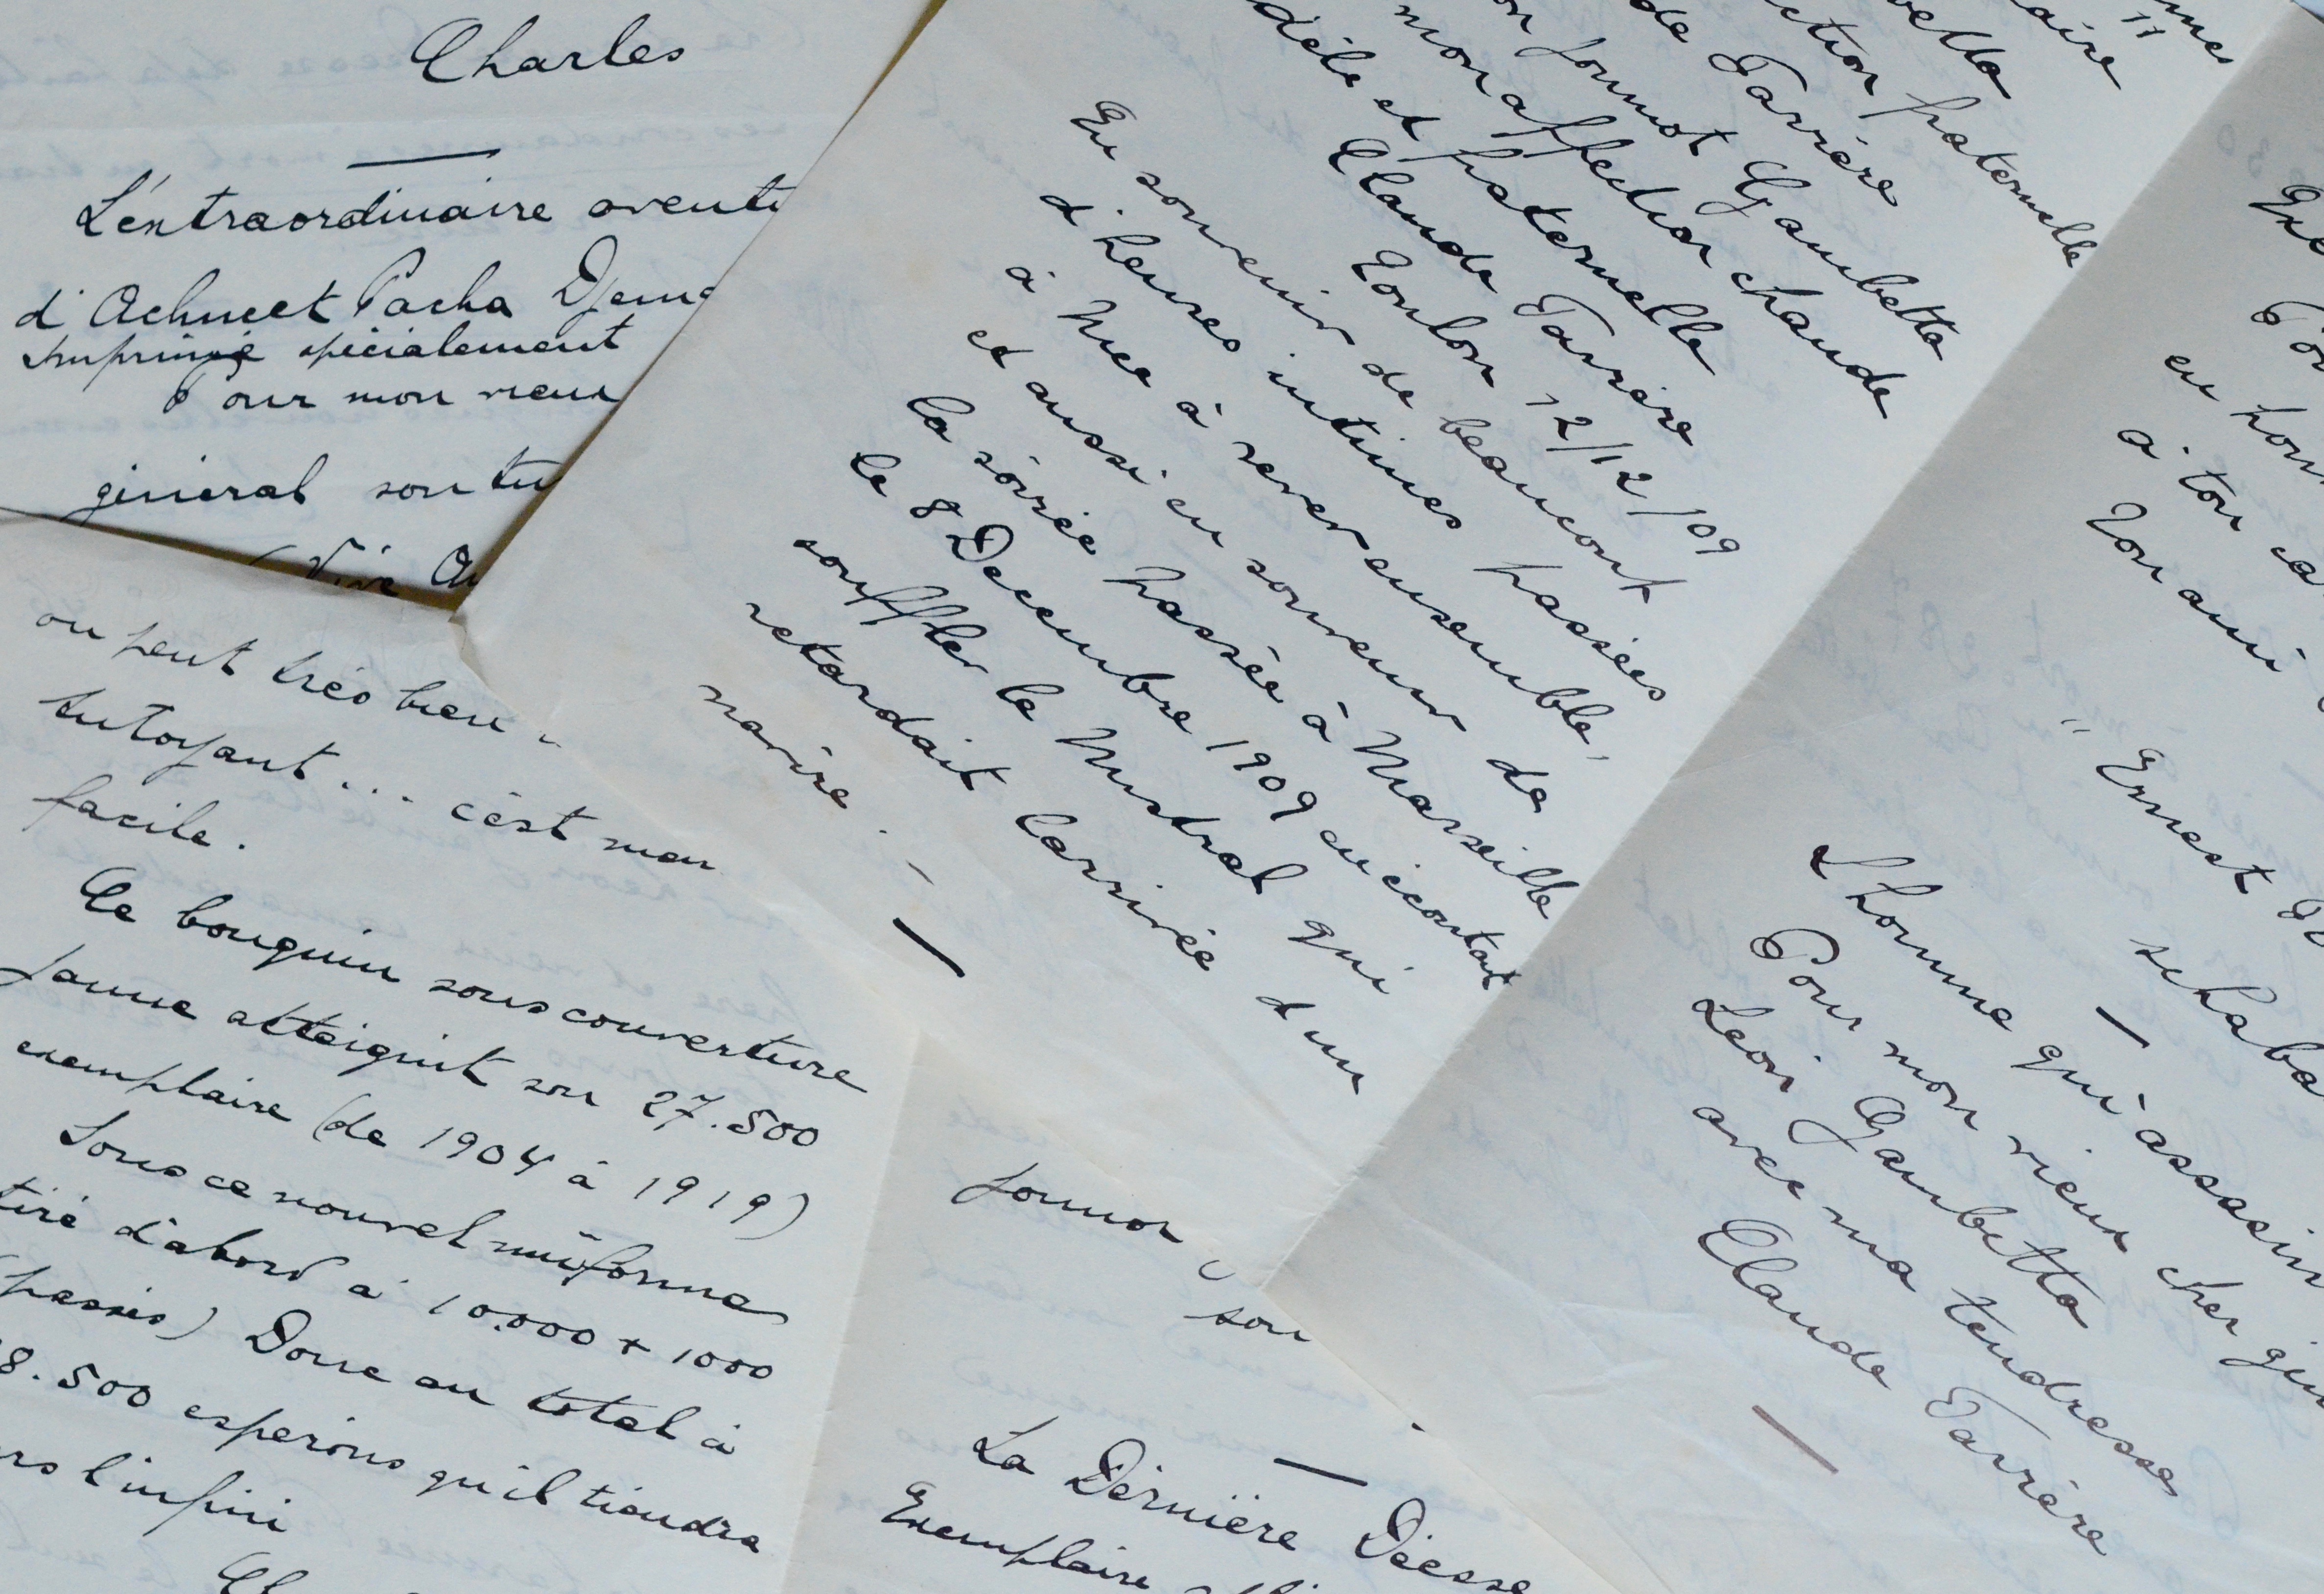 Charles
L'extraordinaire aventu
d'Achmeet Pacha Djem
Imprimé spécialement
Pour mon vieux
général son tu
(Vive
on peut très bien
tutoyant... c'est mon
facile.
Ce bouquin sous couverture
jaune atteignit son 27.500
exemplaire (de 1904 à 1919)
Sous ce nouvel uniforme
tiré d'abord à 10.000 + 1000
(passés) Donc au total à
8.500 espérons qu'il tiendra
rs l'infini
mes
aire
betta
ction fraternelle
de Farrère
on Jounot Gambetta
mon affection chaude
dèle et fraternelle
Claude Farrère
Toulon 12/12/09
En souvenir de beaucoup
d'heures intimes passées
à Nice à rever ensemble,
et aussi en souvenir de
la soirée passée à Marseille
le 8 Decembre 1909 en écoutant
souffler le Mistral qui
retardait l'arrivée d'un
navire.
son
La Dernière Déesse
Exemplaire
en hom
à ton ca
Ton ami
" Ernest
L'homme qui assassin
Pour mon vieux cher
Léon Gambetta
avec ma tendresse
Claude Farrère